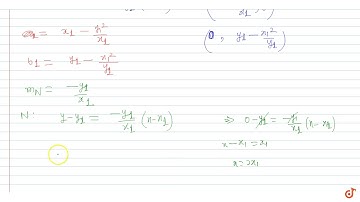 a1 = x1 - y1²/x1
(0, y1 - x1²/y1)
b1 = y1 - x1²/y1
mN = -y1/x1
N: y-y1 = -y1/x1 (x-x1) ⇒ 0-y1 = -y1/x1 (x-x1)
x-x1 = x1
x=2x1
doubtnut